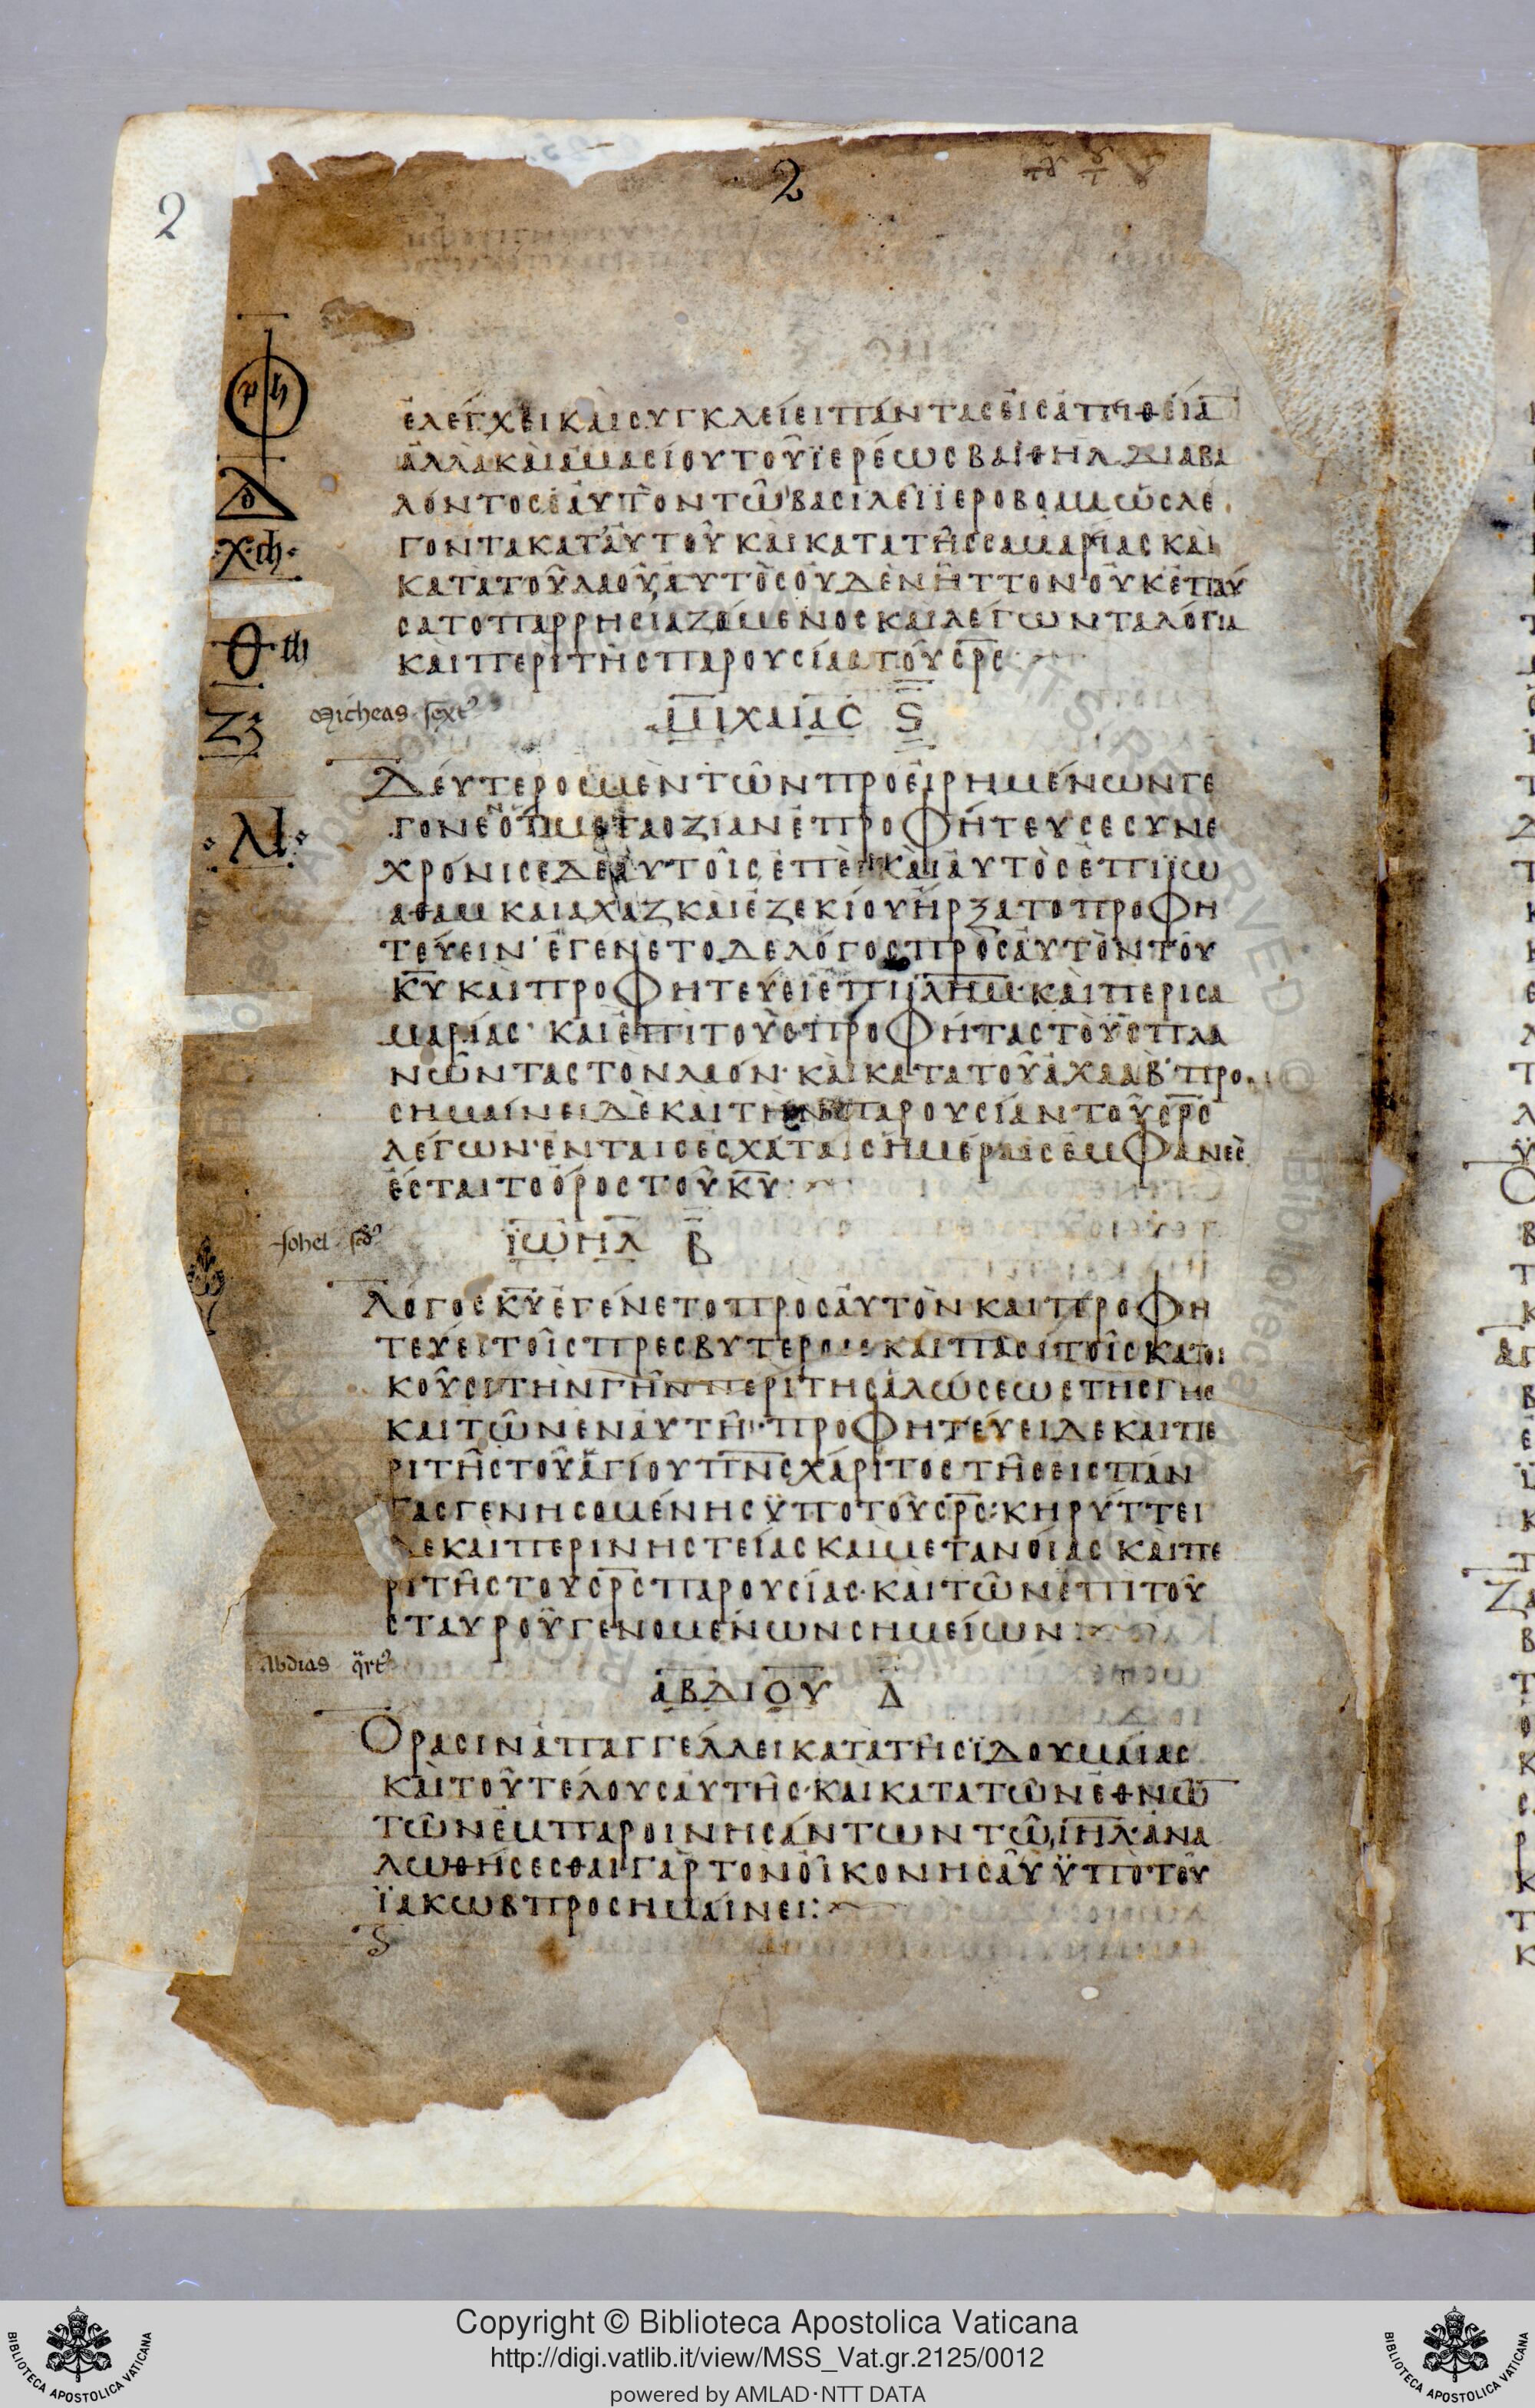 2
2
ἐλέγχει καὶ συγκλείει πάντας εἰς ἀπειθεία
ἀλλὰ καὶ ἀμασίου τοῦ ϊερέως βαιθηλ διαβα
λόντος ἑαυτὸν τῶ βασιλεῖ ϊεροβοαμ ὡς λέ
γοντα κατ' αὐτοῦ καὶ κατα τῆς σαμαρίας καὶ
κατὰ τοῦ λαοῦ, αὐτὸς οὐδὲν ἧττον οὐκ ἐπαύ
σατο παρρησιαζόμενος καὶ λέγων τα λόγια
καὶ περὶ τῆς παρουσίας τοῦ σρς
Micheas sext9
μιχαίας ϛ
Δεύτερος μὲν τῶν προειρημένων γέ
γονεν ὅτι μετα οζιαν ἐπροφήτευσε συνε
χρόνισε δὲ αὐτοῖς ἐπεὶ καὶ αὐτὸς ἐπι ϊω
αθαμ και αχαζ καὶ ἐζεκίου ἤρξατο προφη
τεύειν· ἐγένετο δε λόγος πρὸς αὐτὸν τοῦ
κυ καὶ προφητεύει ἐπι ϊλημ· καὶ περι σα
μαρίας· και ἐπὶ τοὺς προφήτας τοὺς πλα
νῶντας τὸν λαόν· καὶ κατα τοῦ ἀχαὰβ· προ
σημαίνει δὲ καὶ τὴν παρουσίαν τοῦ σρς
λέγων· ἐν ταις ἐσχάταις ἡμέραις ἐμφανὲς
ἔσται το ὄρος τοῦ κυ
Johel scd9
ϊωηλ β
Λόγος κυ ἐγένετο πρὸς αὐτὸν και προφη
τεύει τοῖς πρεσβυτεροις και πασι τοῖς κατοι
κοῦσι τὴν γῆν περὶ της ἁλώσεως της γης
και τῶν ἐν αὐτῆ· προφητεύει δε καὶ πε
ρὶ τῆς τοῦ ἁγίου πνς χάριτος τῆς εις πάν
τας γενησομένης ϋπο τοῦ σρς· κηρύττει
δε καὶ περι νηστείας καὶ μετανοίας καὶ πε
ρὶ τῆς του σρς παρουσίας· καὶ τῶν ἐπὶ τοῦ
σταυροῦ γενομένων σημείων
Abdias qrt9
ἀβδιου δ
Ορασιν ἀπαγγέλλει κατα τῆς ϊδουμαίας
καὶ τοῦ τέλους αὐτῆς· καὶ κατα τῶν ἐθνῶ
τῶν ἐμπαροινησάντων τῶ ιηλ· ἀνα
λωθήσεσθαι γὰρ τὸν οἶκον ησαῦ ϋπὸ τοῦ
ϊακωβ προσημαίνει:
Copyright © Biblioteca Apostolica Vaticana
http://digi.vatlib.it/view/MSS_Vat.gr.2125/0012
powered by AMLAD·NTT DATA
BIBLIOTECA APOSTOLICA VATICANA
BIBLIOTECA APOSTOLICA VATICANA